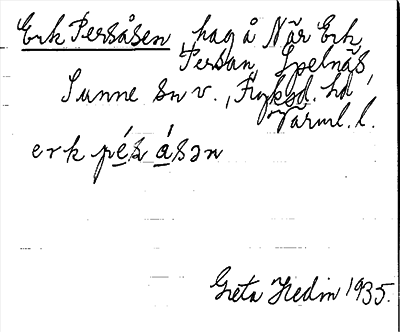 Erk Persåsen, hag å När Erk
Persan, Spelnäs,
Sunne sn v., Fryksd. hd,
Värml. l.
erk pe̲s á̲sən
Greta Hedin 1935.